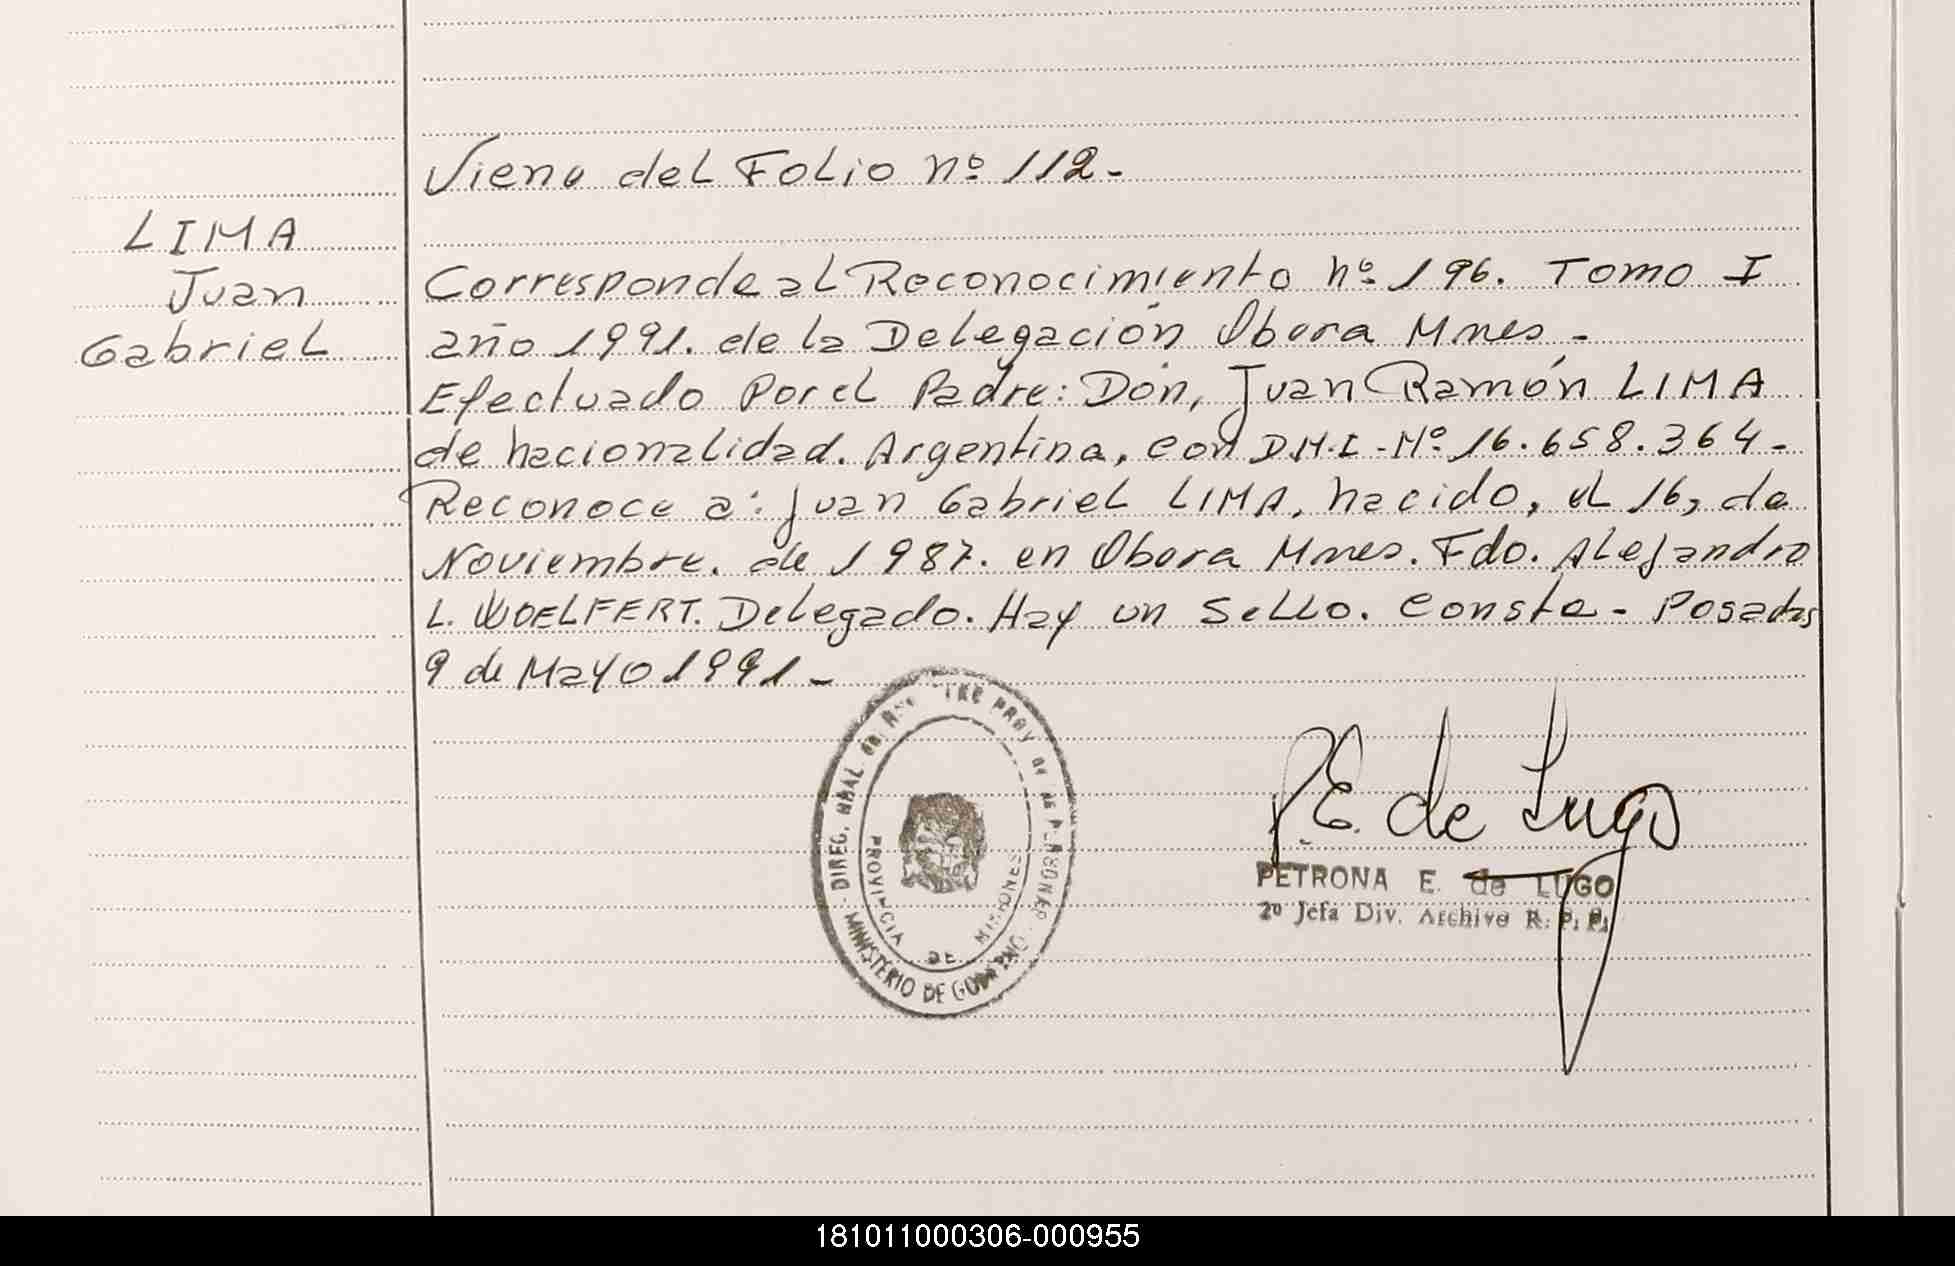 Viene del Folio nº 112.-
LIMA
Juan
Gabriel
Corresponde al Reconocimiento nº 196. Tomo I
año 1991. de la Delegación Obera Mnes.-
Efectuado Por el Padre: Don, Juan Ramón LIMA
de nacionalidad. Argentina, con D.N.I.-Nº 16.658.364.-
Reconoce a: Juan Gabriel LIMA, nacido, el 16, de
Noviembre. de 1987. en Obera Mnes. Fdo. Alejandro
L. WOELFERT. Delegado. Hay un Sello. Conste- Posadas
9 de Mayo 1991.-
DIREC. GRAL. DEL PROV. DE
MINISTERIO DE GOBIERNO
PROVINCIA DE MISIONES
P.E. de Lugo
PETRONA E. de LUGO
2º Jefa Div. Archivo R. P. P.
181011000306-000955